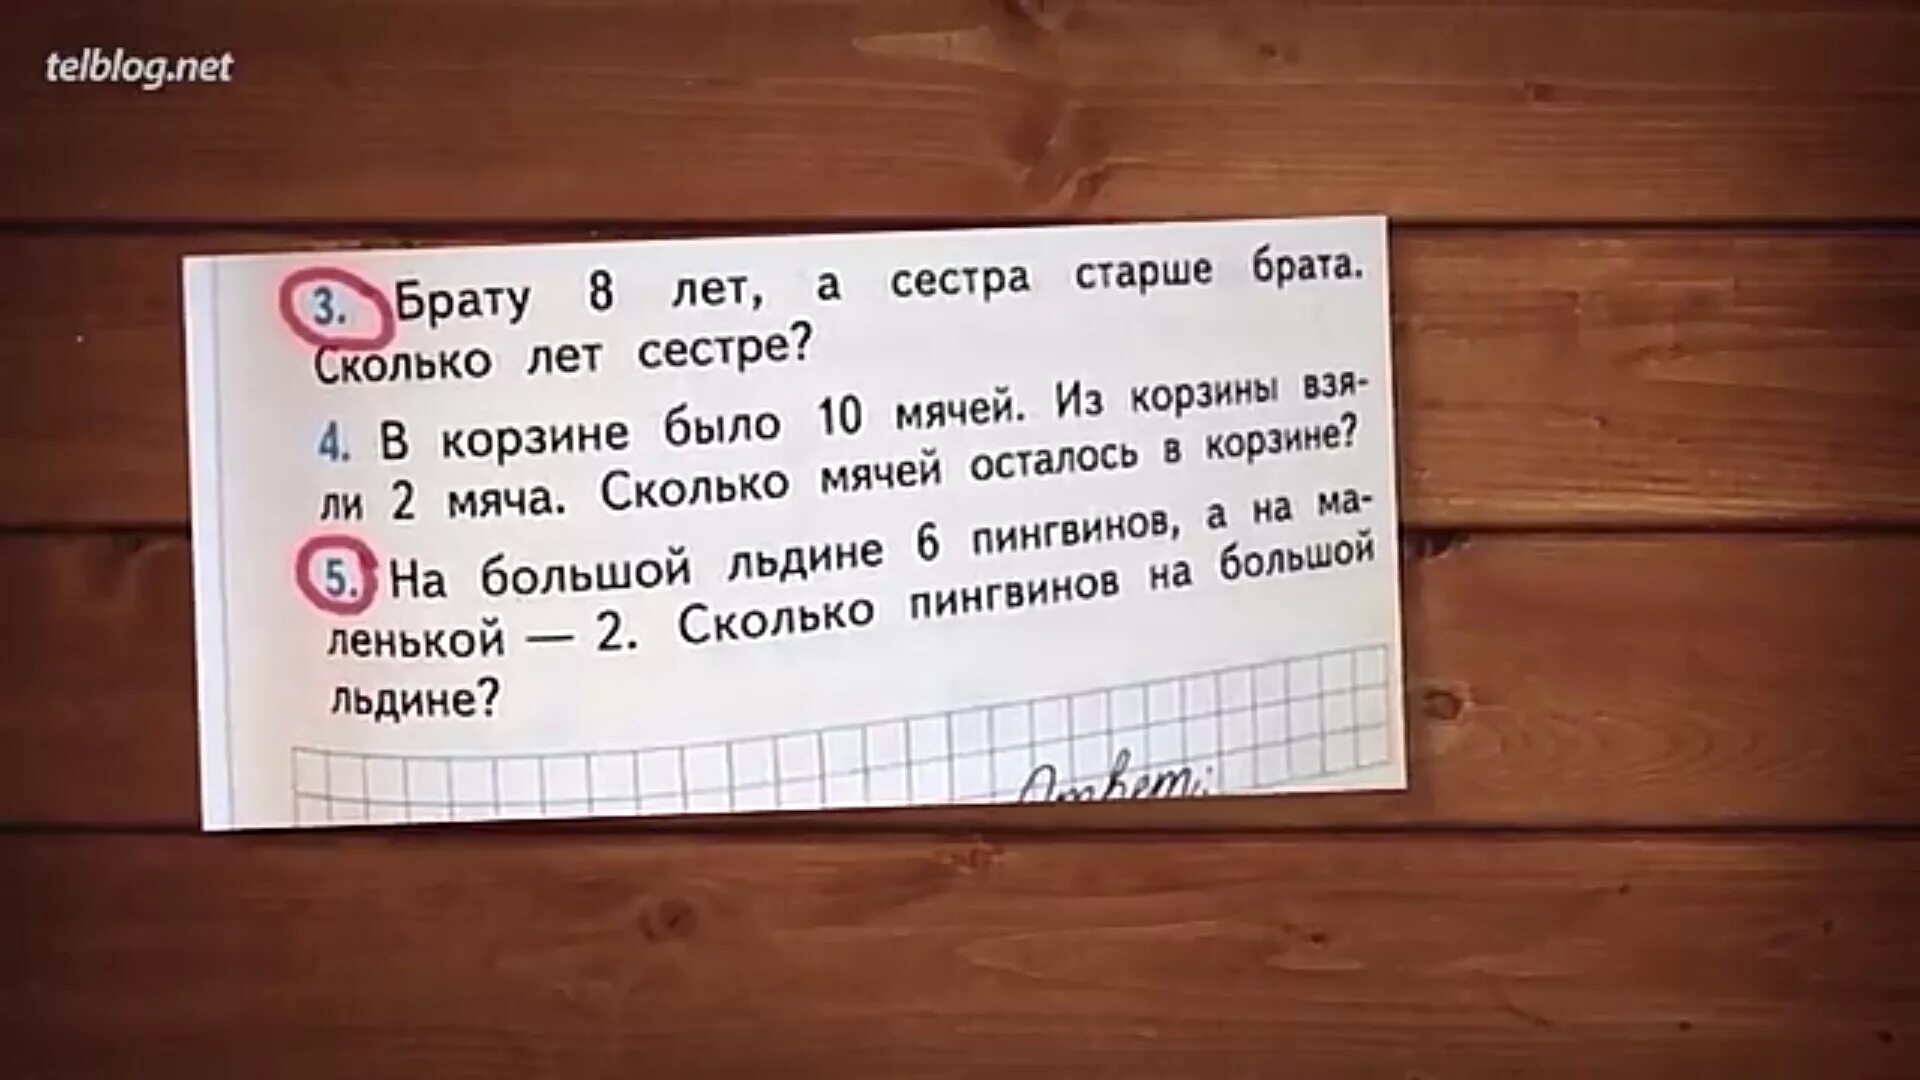 telblog.net
3. Брату 8 лет, а сестра старше брата.
Сколько лет сестре?
4. В корзине было 10 мячей. Из корзины взя-
ли 2 мяча. Сколько мячей осталось в корзине?
5. На большой льдине 6 пингвинов, а на ма-
ленькой — 2. Сколько пингвинов на большой
льдине?
Ответ: